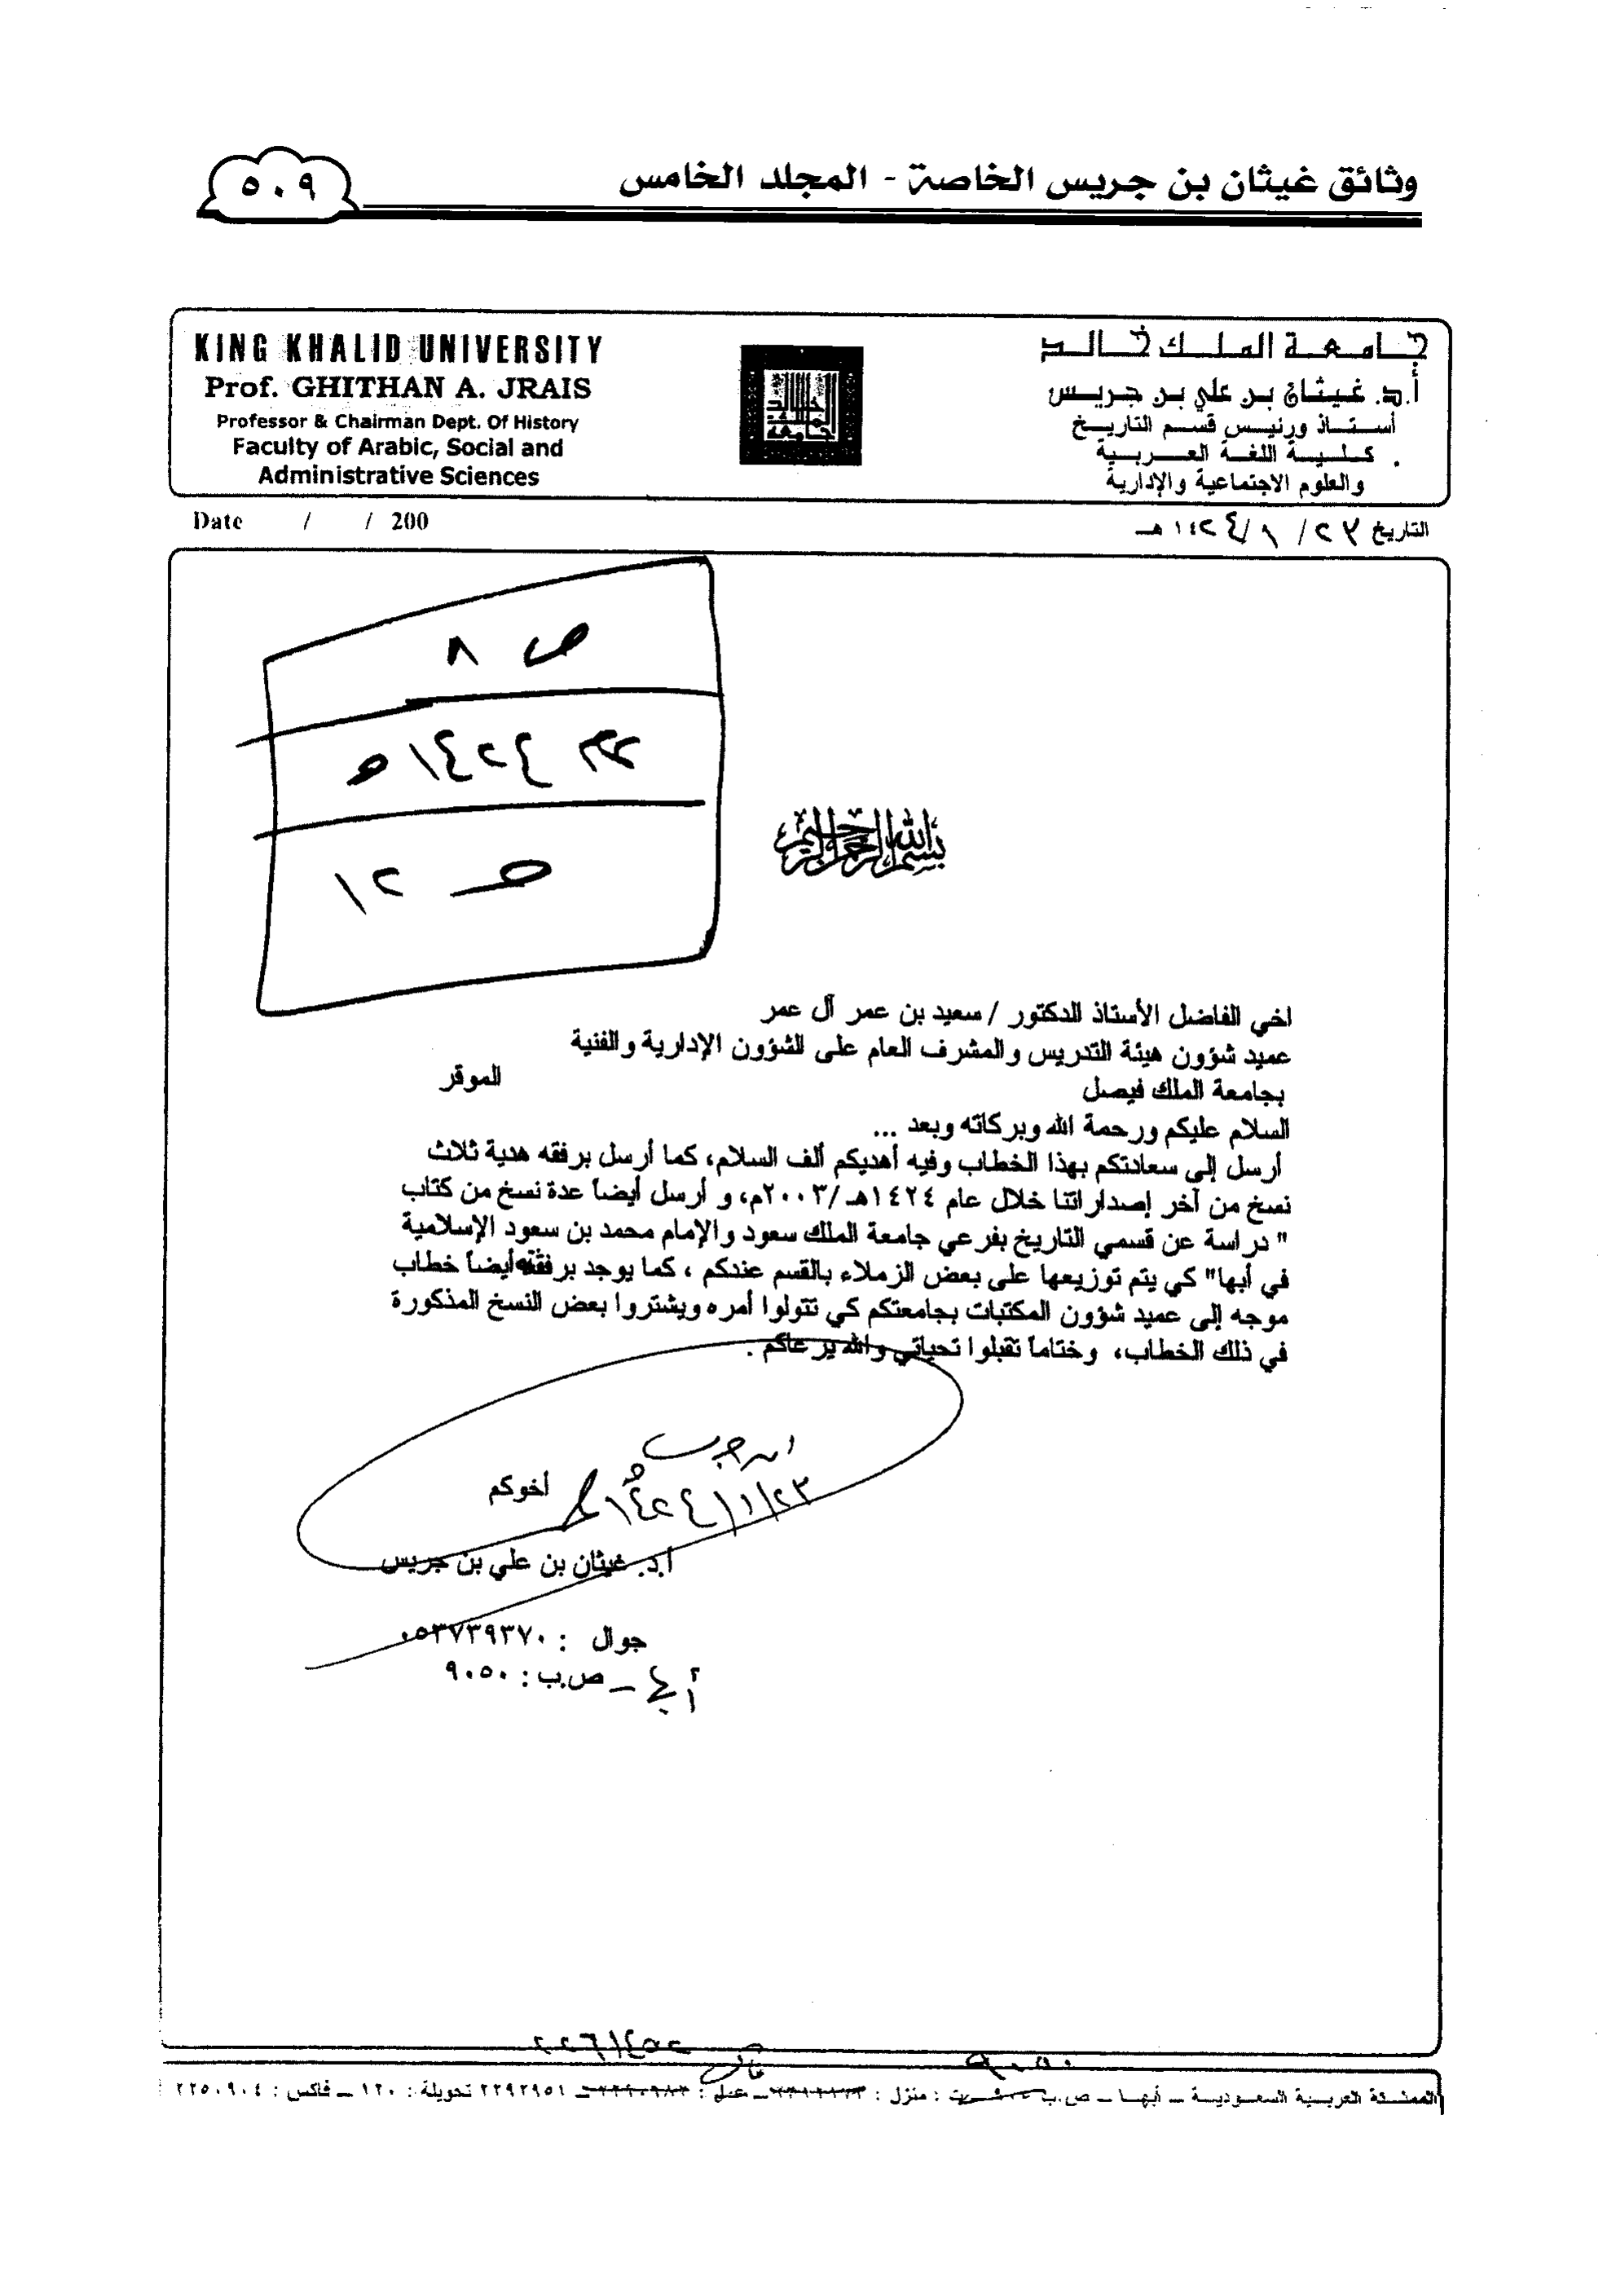 وثائق غيثان بن جريس الخاصة - المجلد الخامس
٥٠٩
KING KHALID UNIVERSITY
Prof. GHITHAN A. JRAIS
Professor & Chairman Dept. Of History
Faculty of Arabic, Social and
Administrative Sciences
جامعة الملك خالد
أ.د. غيثان بن علي بن جريس
أستاذ ورئيس قسم التاريخ
كلية اللغة العربية
والعلوم الاجتماعية والإدارية
Date / / 200
التاريخ / / ١٤٢٤ هـ
ص ٨
١٤٢٤ هـ
١٢
بسم الله الرحمن الرحيم
اخي الفاضل الأستاذ الدكتور / سعيد بن عمر آل عمر
عميد شؤون هيئة التدريس والمشرف العام على الشؤون الإدارية والفنية
بجامعة الملك فيصل الموقر
السلام عليكم ورحمة الله وبركاته وبعد ...
أرسل إلى سعادتكم بهذا الخطاب وفيه أهديكم ألف السلام، كما أرسل برفقه هدية ثلاث
نسخ من آخر إصداراتنا خلال عام ١٤٢٤هـ/٢٠٠٣م، و أرسل أيضاً عدة نسخ من كتاب
" دراسة عن قسمي التاريخ بفرعي جامعة الملك سعود والإمام محمد بن سعود الإسلامية
في أبها" كي يتم توزيعها على بعض الزملاء بالقسم عندكم ، كما يوجد برفقه أيضاً خطاب
موجه إلى عميد شؤون المكتبات بجامعتكم كي تتولوا أمره ويشتروا بعض النسخ المذكورة
في ذلك الخطاب، وختاماً تقبلوا تحياتي والله يرعاكم .
أخوكم
أ.د. غيثان بن علي بن جريس
جوال : ٠٥٣٧٣٩٣٧٠
ص.ب : ٩٠٥٠
٩٠٥٠
المملكة العربية السعودية – أبها – ص.ب – عمل : ٢٢٩٢٩٥١ تحويلة : ١٢٠ – فاكس : ٢٢٥٠٩٠٤